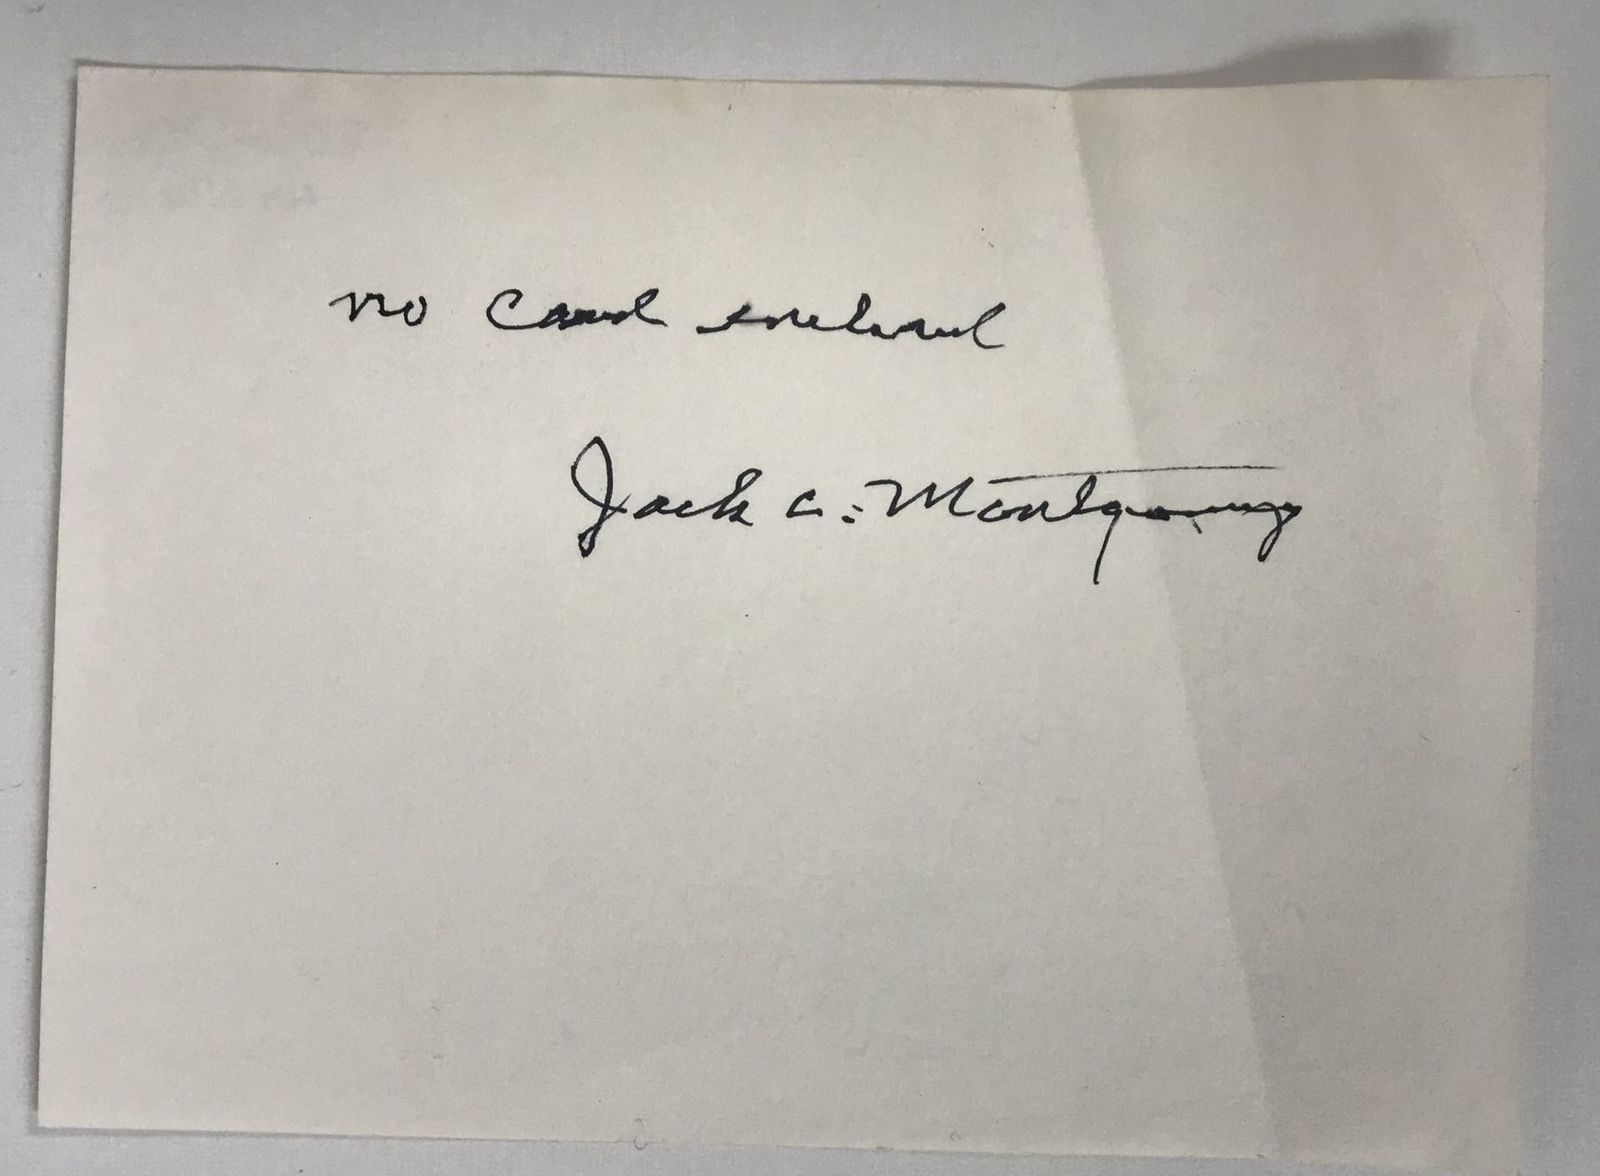 no Card enclosed
Jack C. Montgomery